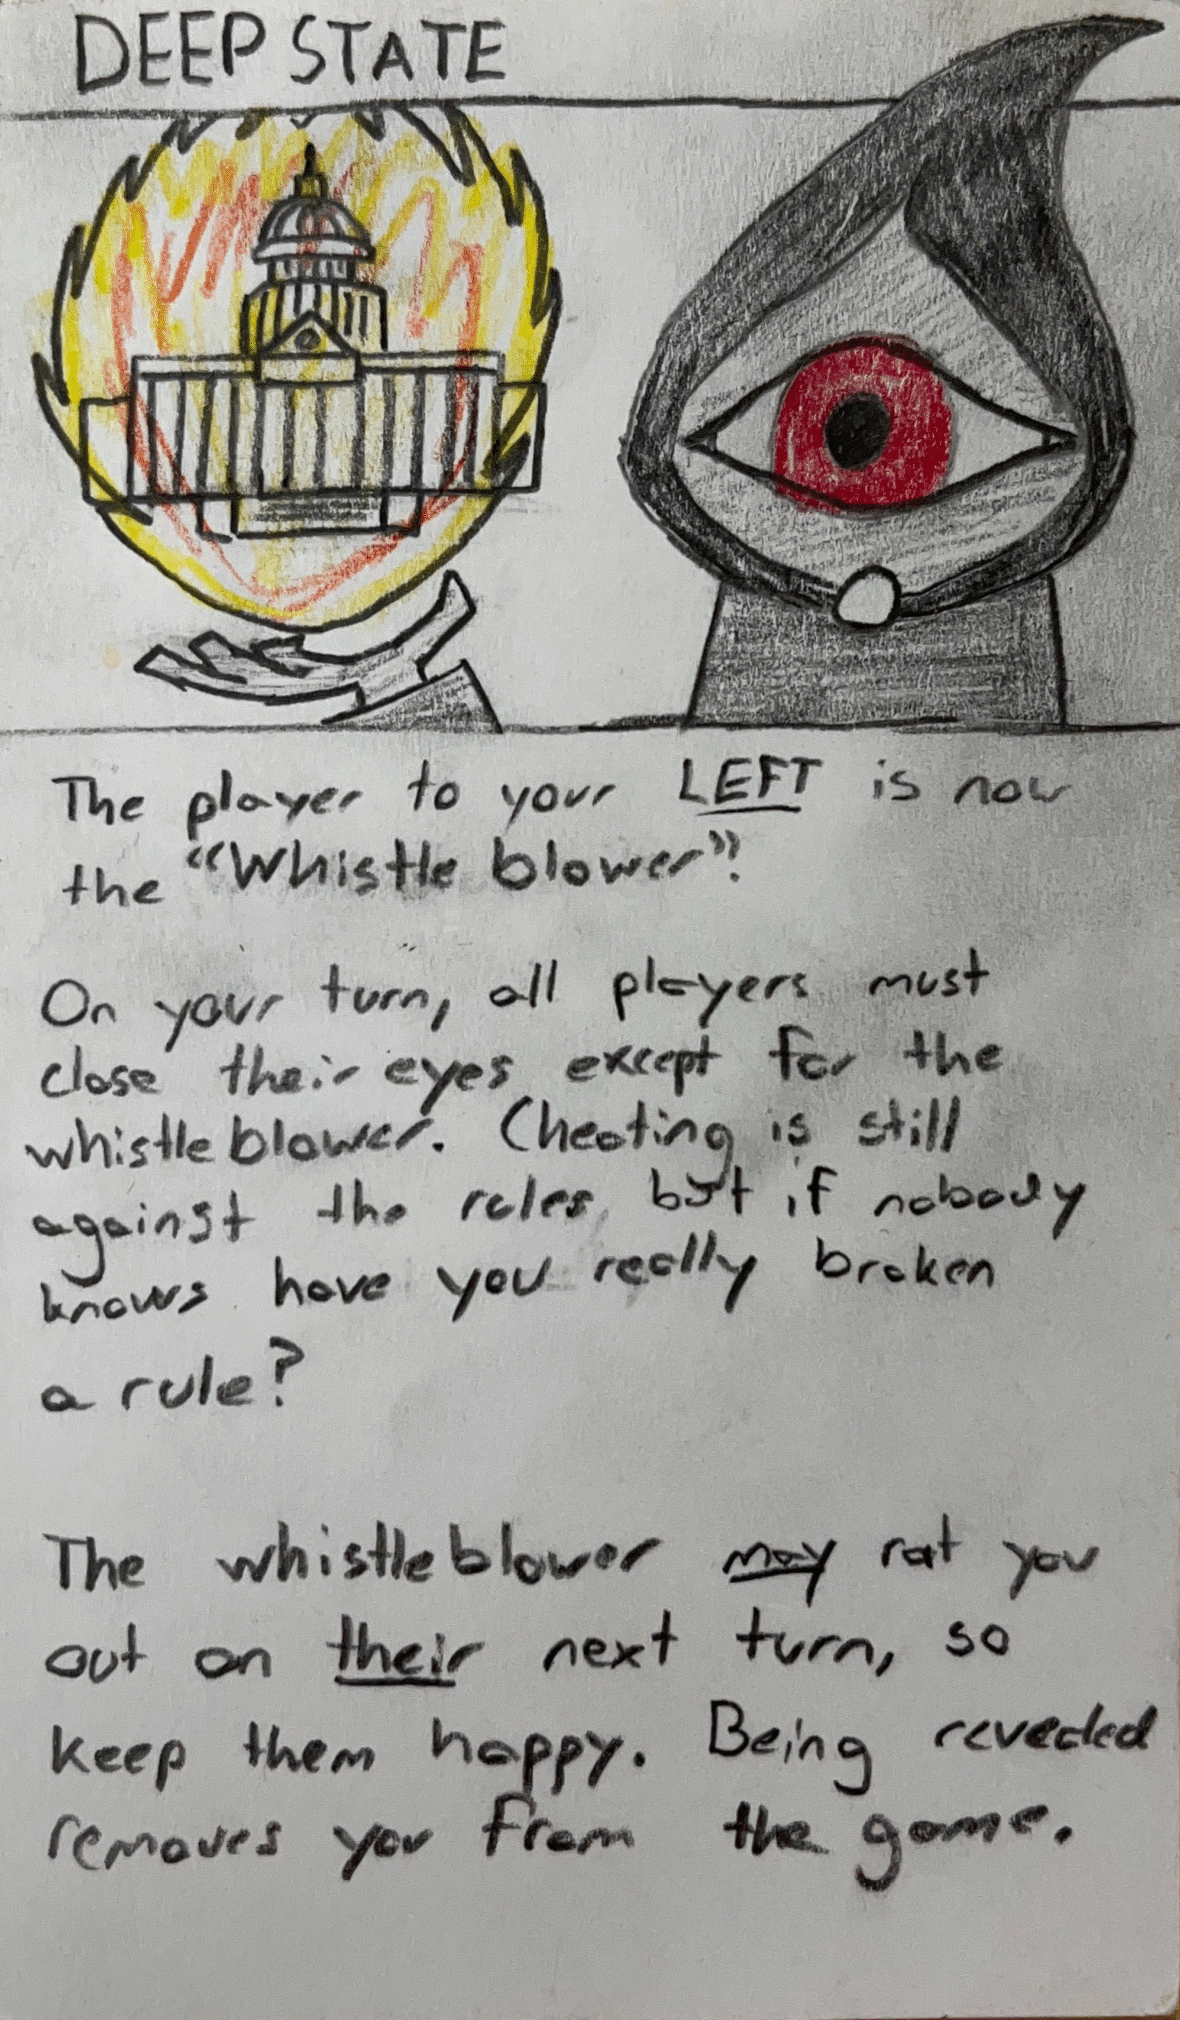 DEEP STATE
The player to your LEFT is now
the "Whistle blower".
On your turn, all players must
close their eyes except for the
whistleblower. Cheating is still
against the rules, but if nobody
knows have you really broken
a rule?
The whistleblower may rat you
out on their next turn, so
keep them happy. Being revealed
removes you from the game.